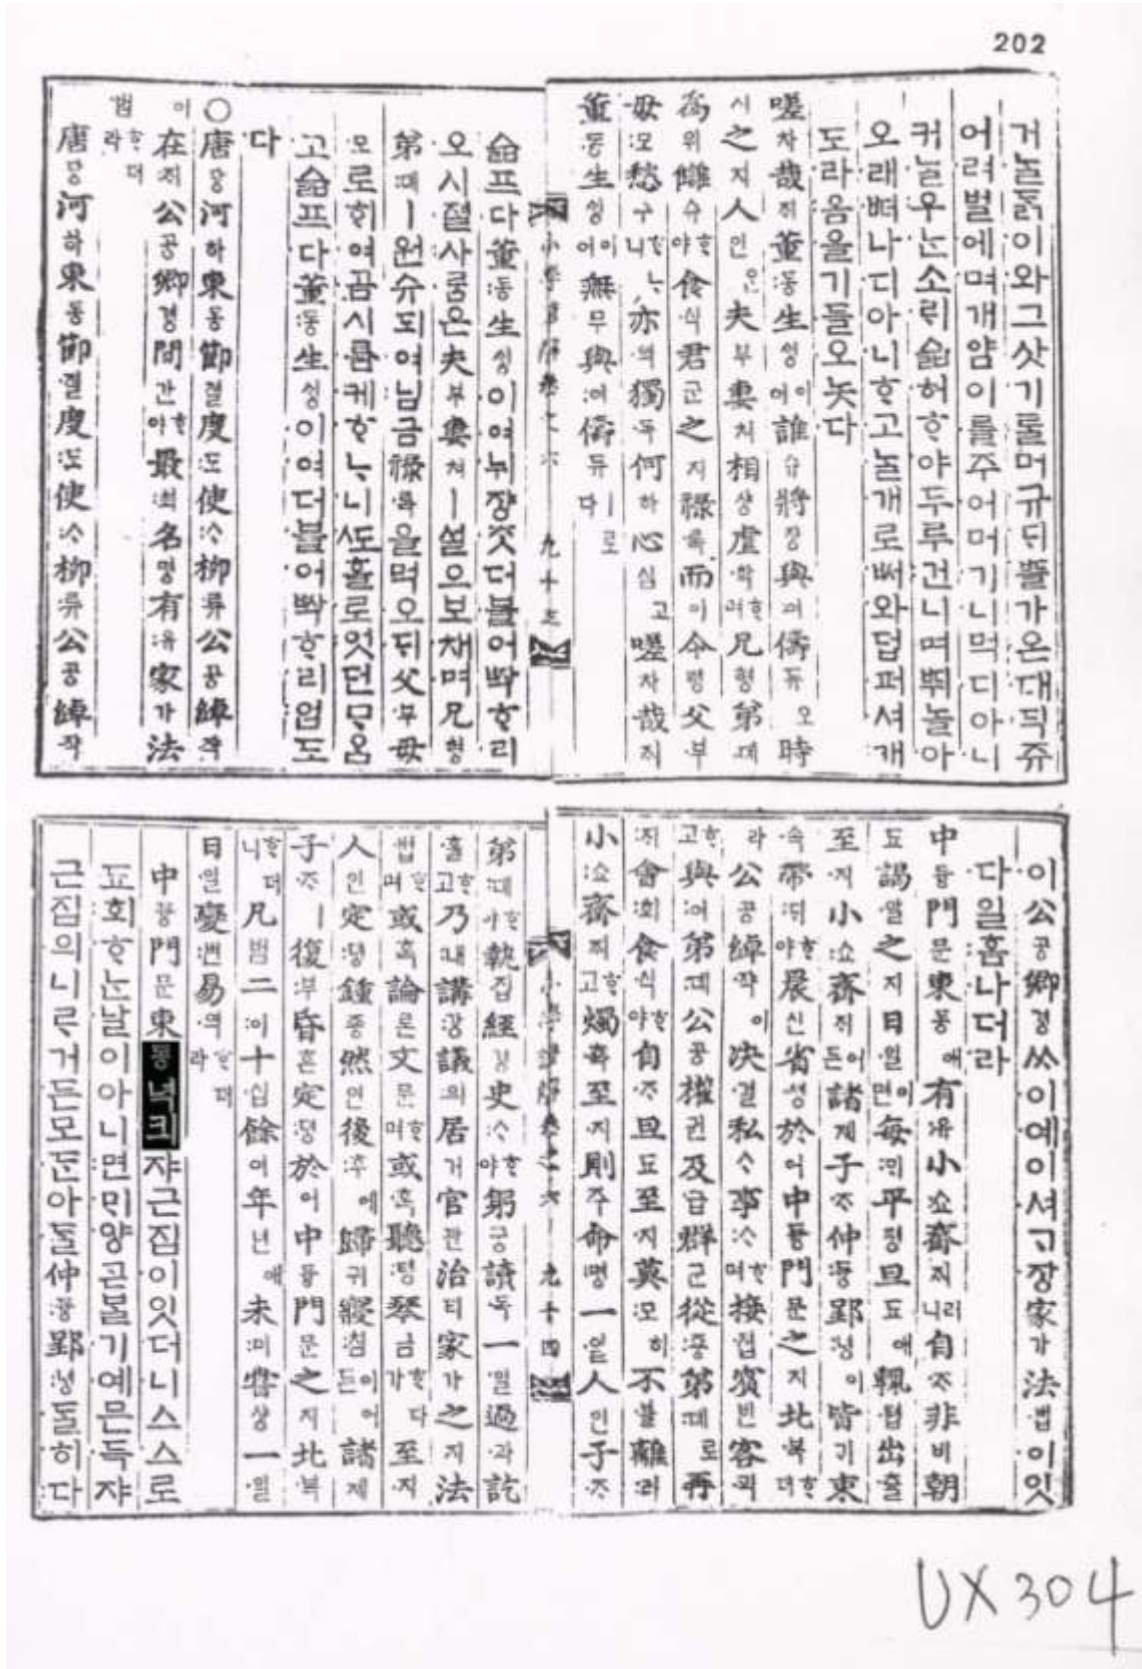 202
거늘ᄃᆞᆰ이와그삿기ᄅᆞᆯ머규ᄃᆡᄠᅳᆯ가온대딕쥬
어려벌에며개얌이를주어머기니먹디아니
커ᄂᆞᆯ우ᄂᆞᆫ소ᄅᆡ슬허ᄒᆞ야두루건니며ᄠᅱ놀아
오래ᄠᅥ나디아니ᄒᆞ고ᄂᆞᆯ개로ᄡᅥ와덥퍼셔개
도라옴을기들오놋다
嗟차哉ᄌᆡ董동生ᄉᆡᆼ이어誰슈將쟝與여儔듀오時
시之지人인ᄋᆞᆫ夫부妻쳐相샹虐학ᄒᆞ며兄형弟뎨
爲위讎슈ᄒᆞ야食식君군之지祿록而이令령父부
母모愁수ᄒᆞᄂᆞ니亦역獨독何하心심고嗟차哉ᄌᆡ
董동生ᄉᆡᆼ이어無무與여儔듀ㅣ로다
小學諺解卷之六 九十三
슬프다董동生ᄉᆡᆼ이여뉘쟝ᄎᆞᆺ더블어ᄧᅡᆨᄒᆞ리
오시졀사ᄅᆞᆷ은夫부妻쳐ㅣ설으보채며兄형
弟뎨ㅣ원슈되여님금祿록을먹오ᄃᆡ父부母
모로ᄒᆡ여곰시름케ᄒᆞᄂᆞ니ᄯᅩ홀로엇던ᄆᆞᄋᆞᆷ
고슬프다董동生ᄉᆡᆼ이여더블어ᄧᅡᆨᄒᆞ리업도
다
○唐당河하東동節졀度도使ᄉᆞ柳류公공綽쟉
이在ᄌᆡ公공卿경間간ᄒᆞ야最최名명有유家가法
법이라ᄒᆞ더
唐당河하東동節졀度도使ᄉᆞ柳류公공綽쟉
이公공卿경ᄉᆞ이예이셔ᄀᆞ장家가法법이잇
다일홈나더라
中듕門문東동애有유小쇼齋ᄌᆡ러니自ᄌᆞ非비朝
됴謁알之지日일이면每ᄆᆡ平평旦됴애輒텹出츌
至지小쇼齋ᄌᆡ어든諸졔子ᄌᆞ仲듕郢녕이皆ᄀᆡ束
속帶ᄃᆡᄒᆞ야晨신省셩於어中듕門문之지北북ᄒᆞ더
라公공綽쟉이決결私ᄉᆞ事ᄉᆞᄒᆞ며接졉賓빈客ᄀᆡᆨ
ᄒᆞ고與여弟뎨公공權권及급群군從죵弟뎨로再
ᄌᆡ會회食식ᄒᆞ야自ᄌᆞ旦됴至지莫모히不블離리
小쇼齋ᄌᆡᄒᆞ고燭쵹至지則즉命명一일人인子ᄌᆞ
小學諺解卷之六 九十四
弟뎨ᄒᆞ야執집經경史ᄉᆞᄒᆞ야躬궁讀독一일過과訖
흘ᄒᆞ고乃내講강議의居거官관治티家가之지法
법ᄒᆞ며或혹論론文문ᄒᆞ며或혹聽텽琴금ᄒᆞ다가至지
人인定뎡鍾죵然연後후에歸귀寢침이어든諸졔
子ᄌᆞㅣ復부昏혼定뎡於어中듕門문之지北북
ᄒᆞ더니凡범二이十십餘여年년애未미嘗샹一일
日일變변易역ᄒᆞ더라
中듕門문東동녁킈쟈근집이잇더니스스로
됴회ᄒᆞᄂᆞᆫ날이아니면ᄆᆡ양ᄀᆞᆮᄇᆞᆰ기예믄득쟈
근집의니르거든모ᄃᆞᆫ아ᄃᆞᆯ仲듕郢녕ᄃᆞᆯ히다
UX304